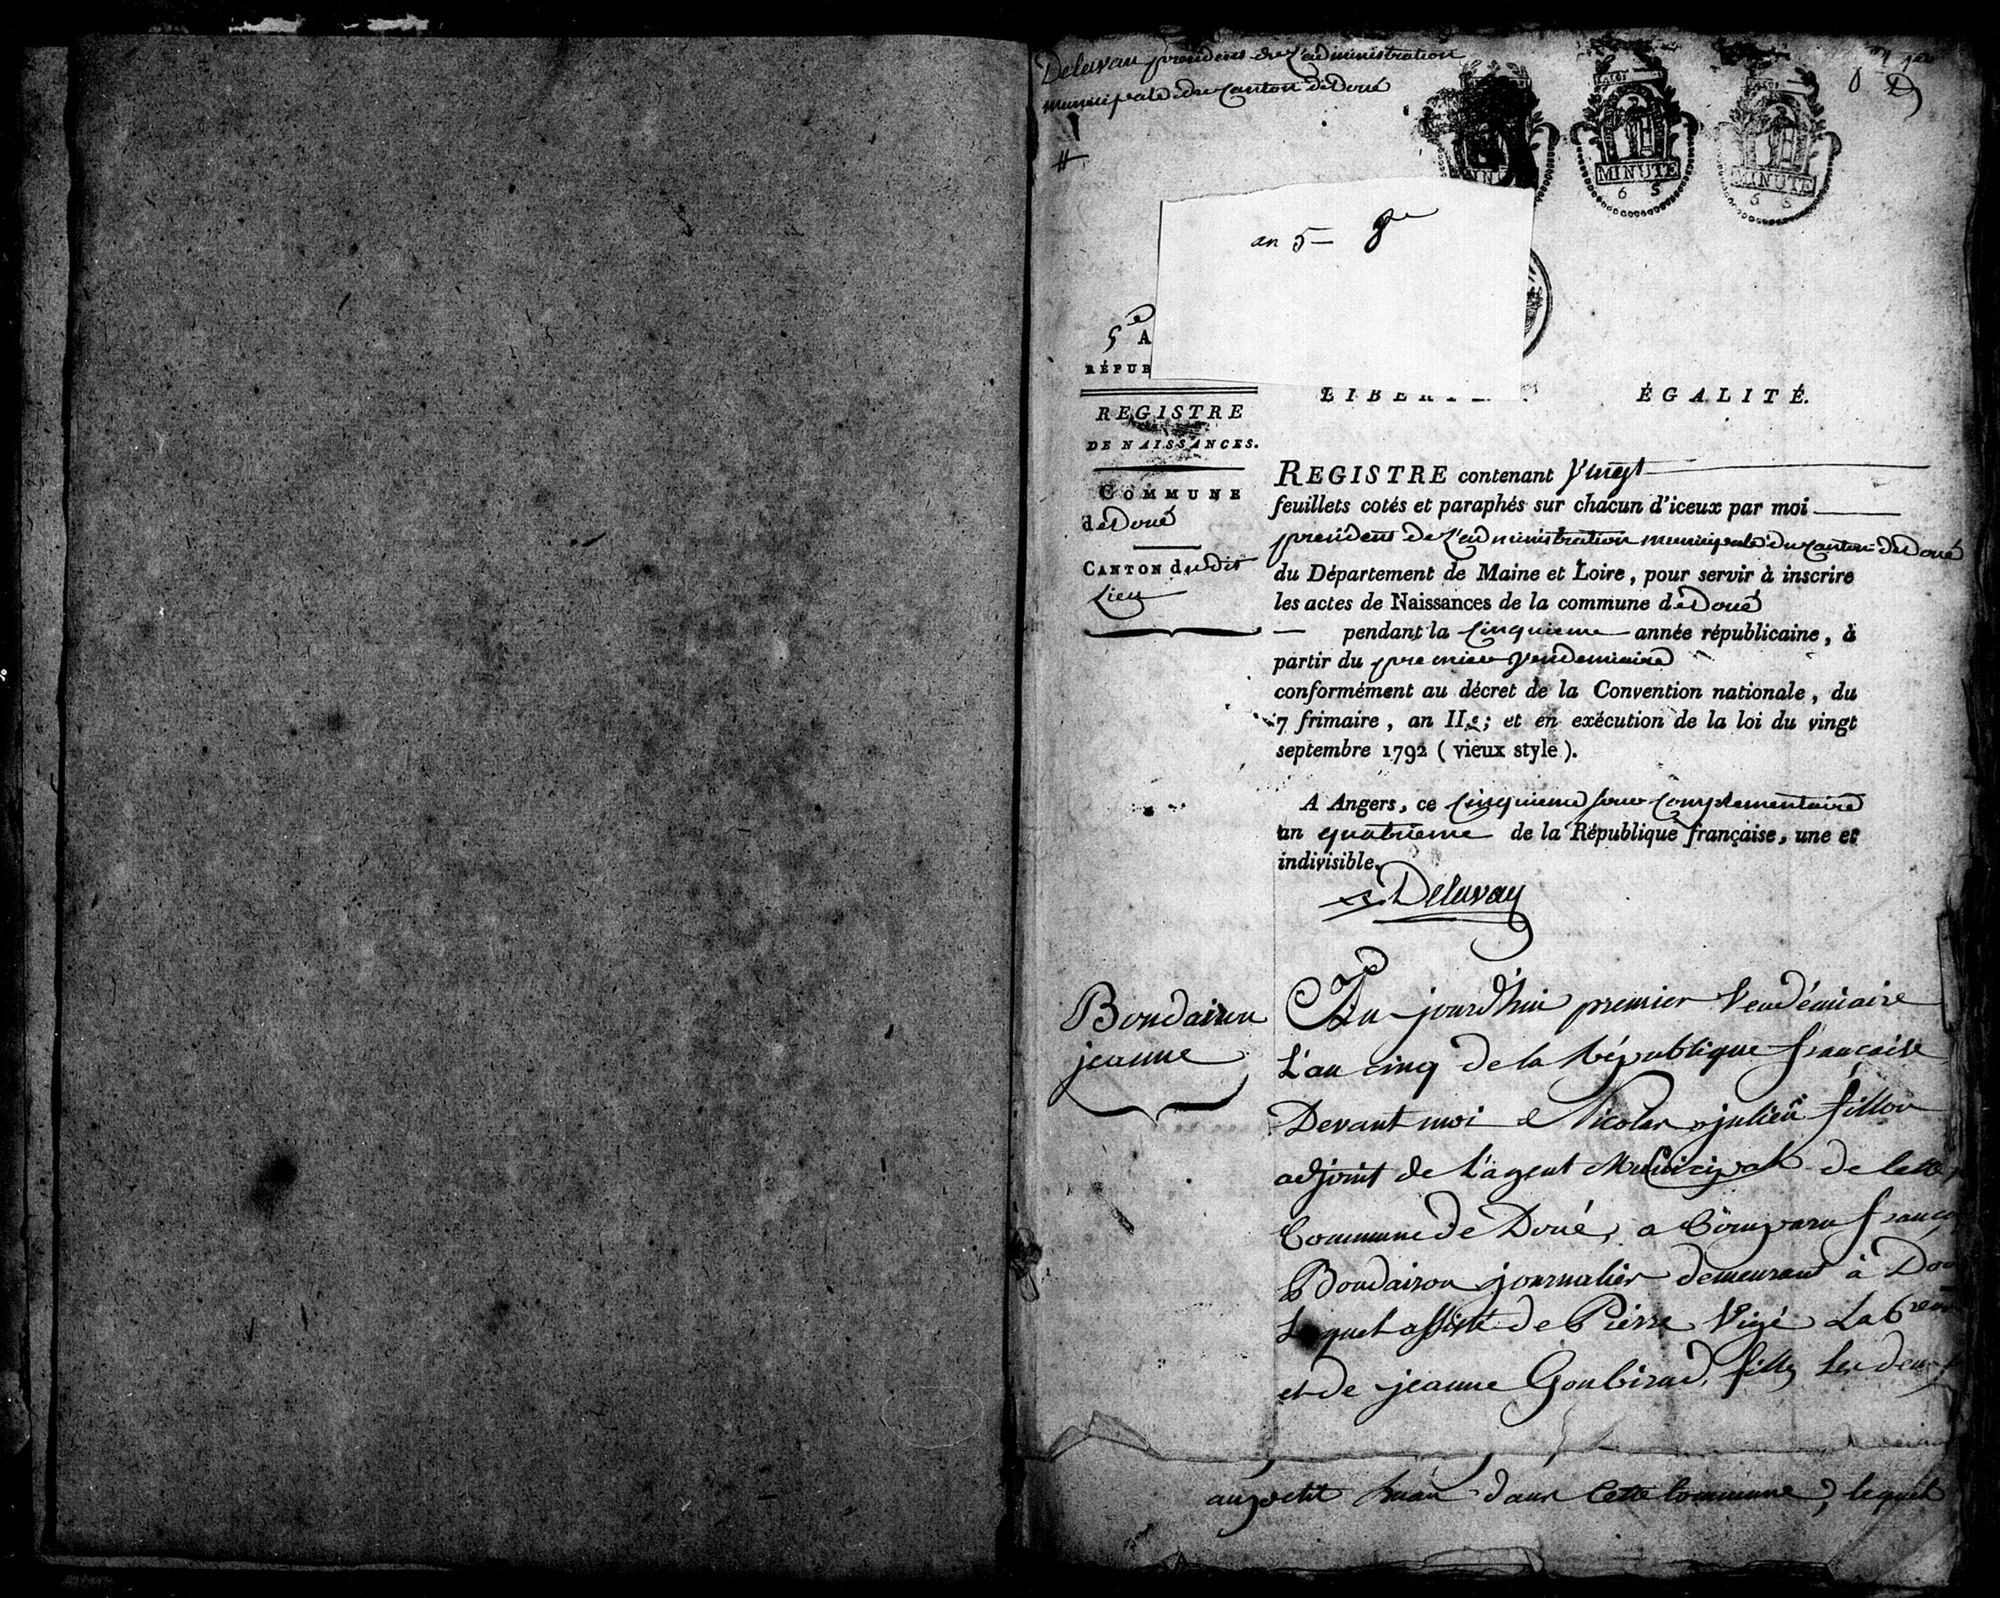 Delavau president de l'administration
municipale du Canton de Doué
LA LOI
LA LOI
MINUTE
MINUTE
6 S
6 S
an 5 —
5e A
RÉPUB
LIBERT
ÉGALITÉ.
REGISTRE
DE NAISSANCES.
COMMUNE
de Doué
CANTON du dit
Lieu
REGISTRE contenant Vingt
feuillets cotés et paraphés sur chacun d'iceux par moi
président de l'administration municipale du canton de Doué
du Département de Maine et Loire, pour servir à inscrire
les actes de Naissances de la commune de Doué
— pendant la cinquieme année républicaine, à
partir du premier Vendemiaire
conformément au décret de la Convention nationale, du
7 frimaire, an IIe; et en exécution de la loi du vingt
septembre 1792 (vieux style).
A Angers, ce cinquieme jour complementaire
an quatrieme de la République française, une et
indivisible.
Delavau
Boudairon
jeanne
Au jourd'hui premier Vendémiaire
L'an cinq de la République française
Devant moi Nicolas julien fillon
adjoint de L'agent Municipal de Cette
Commune de Doué, a Comparu franço
Boudairon journalier demeurant à Dou
Lequel assisté de Pierre Vigé
et de jeanne Goubirad, fille, les deux
au petit dans Cette Commune, lequel